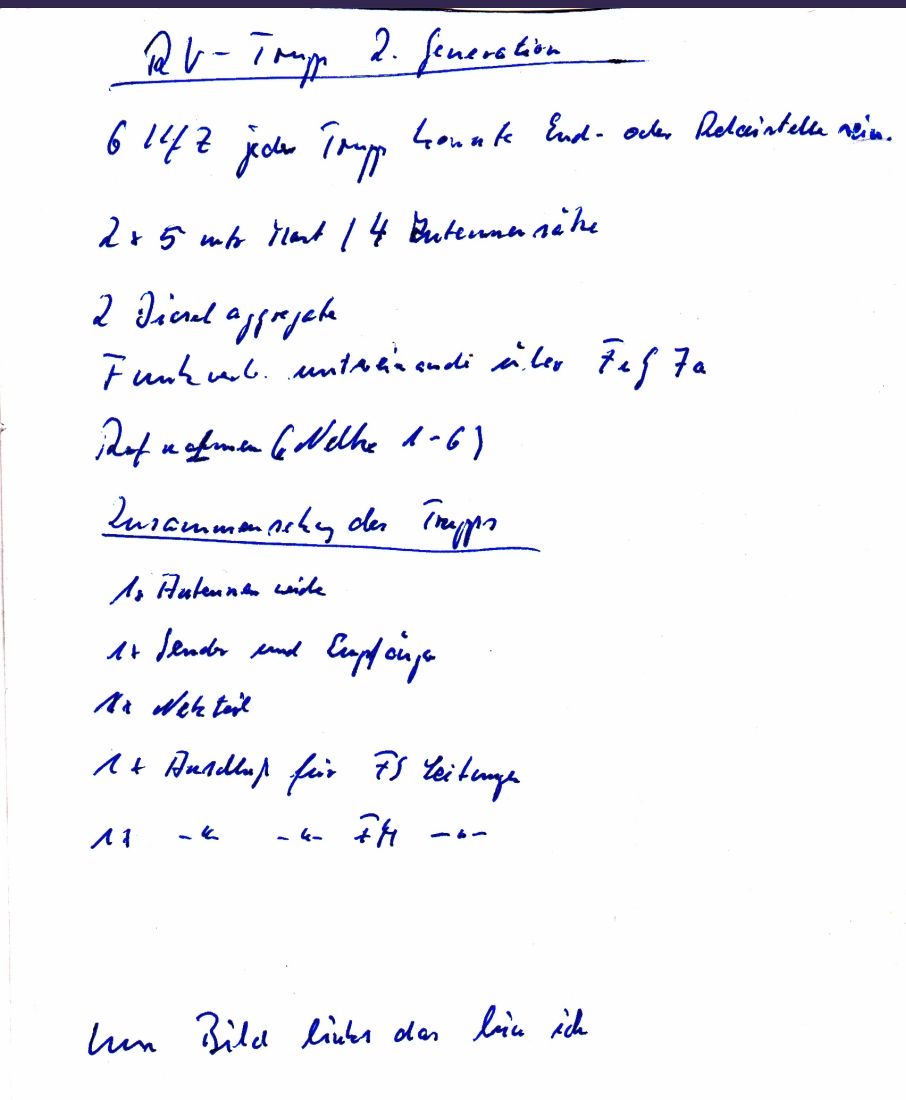 RV-Trupp 2. Generation
6 Kfz jeder Trupp konnte End- oder Relaistelle sein.
2 x 5 mtr Mast / 4 Antennensätze
2 Dieselaggregate
Funkverb. untereinander über FuG 7a
Rufnahmen (Nelke 1-6)
Zusammensetzg des Trupps
1x Antennenweiche
1x Sender und Empfänger
1x Netzteil
1x Anschluß für FS Leitungen
1x -"- -"- -"-
Bild links das bin ich